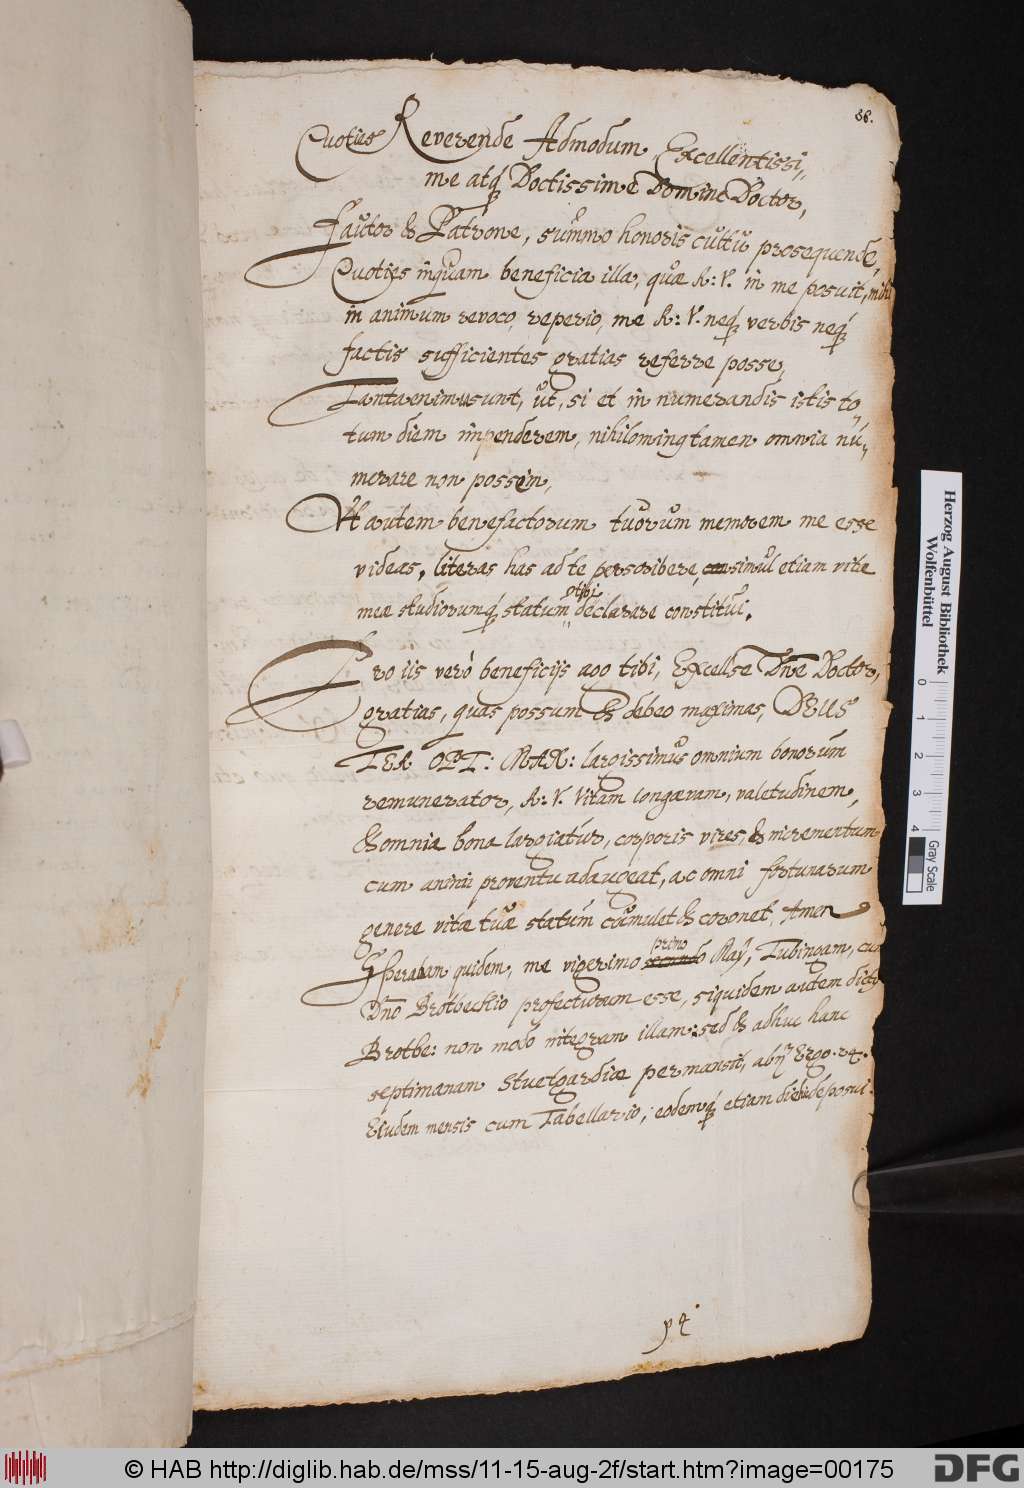 86.
Quoties Reverende Admodum Excellentissi,,
me atq́ Doctissime Domine Doctor,
Fautor & Patrone, summo honoris cultu prosequende,
Quoties inquam beneficia illa, quæ R: V. in me posuit, mihi
in animum revoco, reperio, me R: V. neq́ verbis neq́
factis sufficientes gratias referre posse,
Tanta enim sunt, ut, si et in numerandis istis to,,
tum diem impenderem, nihilominq tamen omnia nu,,
merare non possem,
Ut autem benefactorum tuorum memorem me esse
videas, literas has ad te perscribere, simul etiam vitæ
meæ studiorumq́ statum tibi declarare constitui.
Pro iis verò beneficijs ago tibi, Excellse Dne Doctor,
gratias, quas possum & debeo maximas, DEUS
TER OPT: MAX: largissimus omnium bonorum
remunerator, R: V. vitam longævam, valetudinem,
& omnia bona largiatur, corporis vires, & incrementum
cum animi proventu adaugeat, ac omni fortunarum
genere vitæ tuæ statum cumulet & coronet, Amen
Speraham quidem, me vigesimo primo secundo Maÿ, Tubingam, cum
Dno Brotbeckio profecturum esse, siquidem autem dictq
Brotbe: non modo integram illam: sed & adhuc hanc
septimanam Stuetgardiæ permansit, abij Ergo 24.
Eiudem mensis cum Tabellario, eodemq́ etiam die deposui.
p4
Herzog August Bibliothek
Wolfenbüttel
0 1 2 3 4
Gray Scale
© HAB http://diglib.hab.de/mss/11-15-aug-2f/start.htm?image=00175
DFG